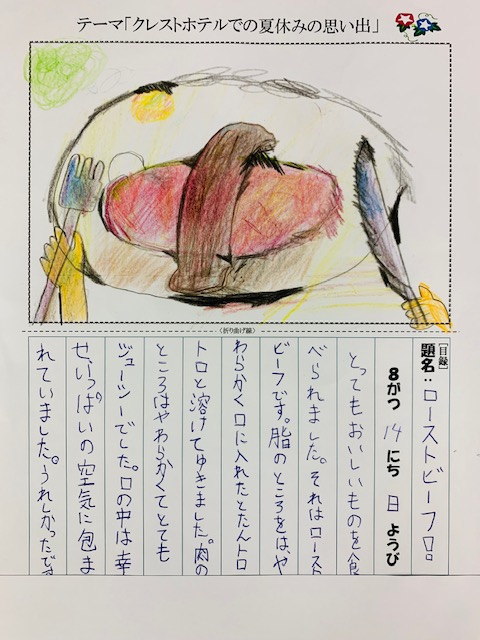 テーマ「クレストホテルでの夏休みの思い出」
(折り曲げ線)
[目録]
題名:ローストビーフ!。
8がつ 14にち 日ようび
とってもおいしいものを食
べられました。それはロースト
ビーフです。脂のところをはや
わらかく口に入れたとたんトロ
トロと溶けてゆきました。肉の
ところはやわらかくてとても
ジューシーでした。口の中は幸
せいっぱいの空気に包ま
れていました。うれしかったです